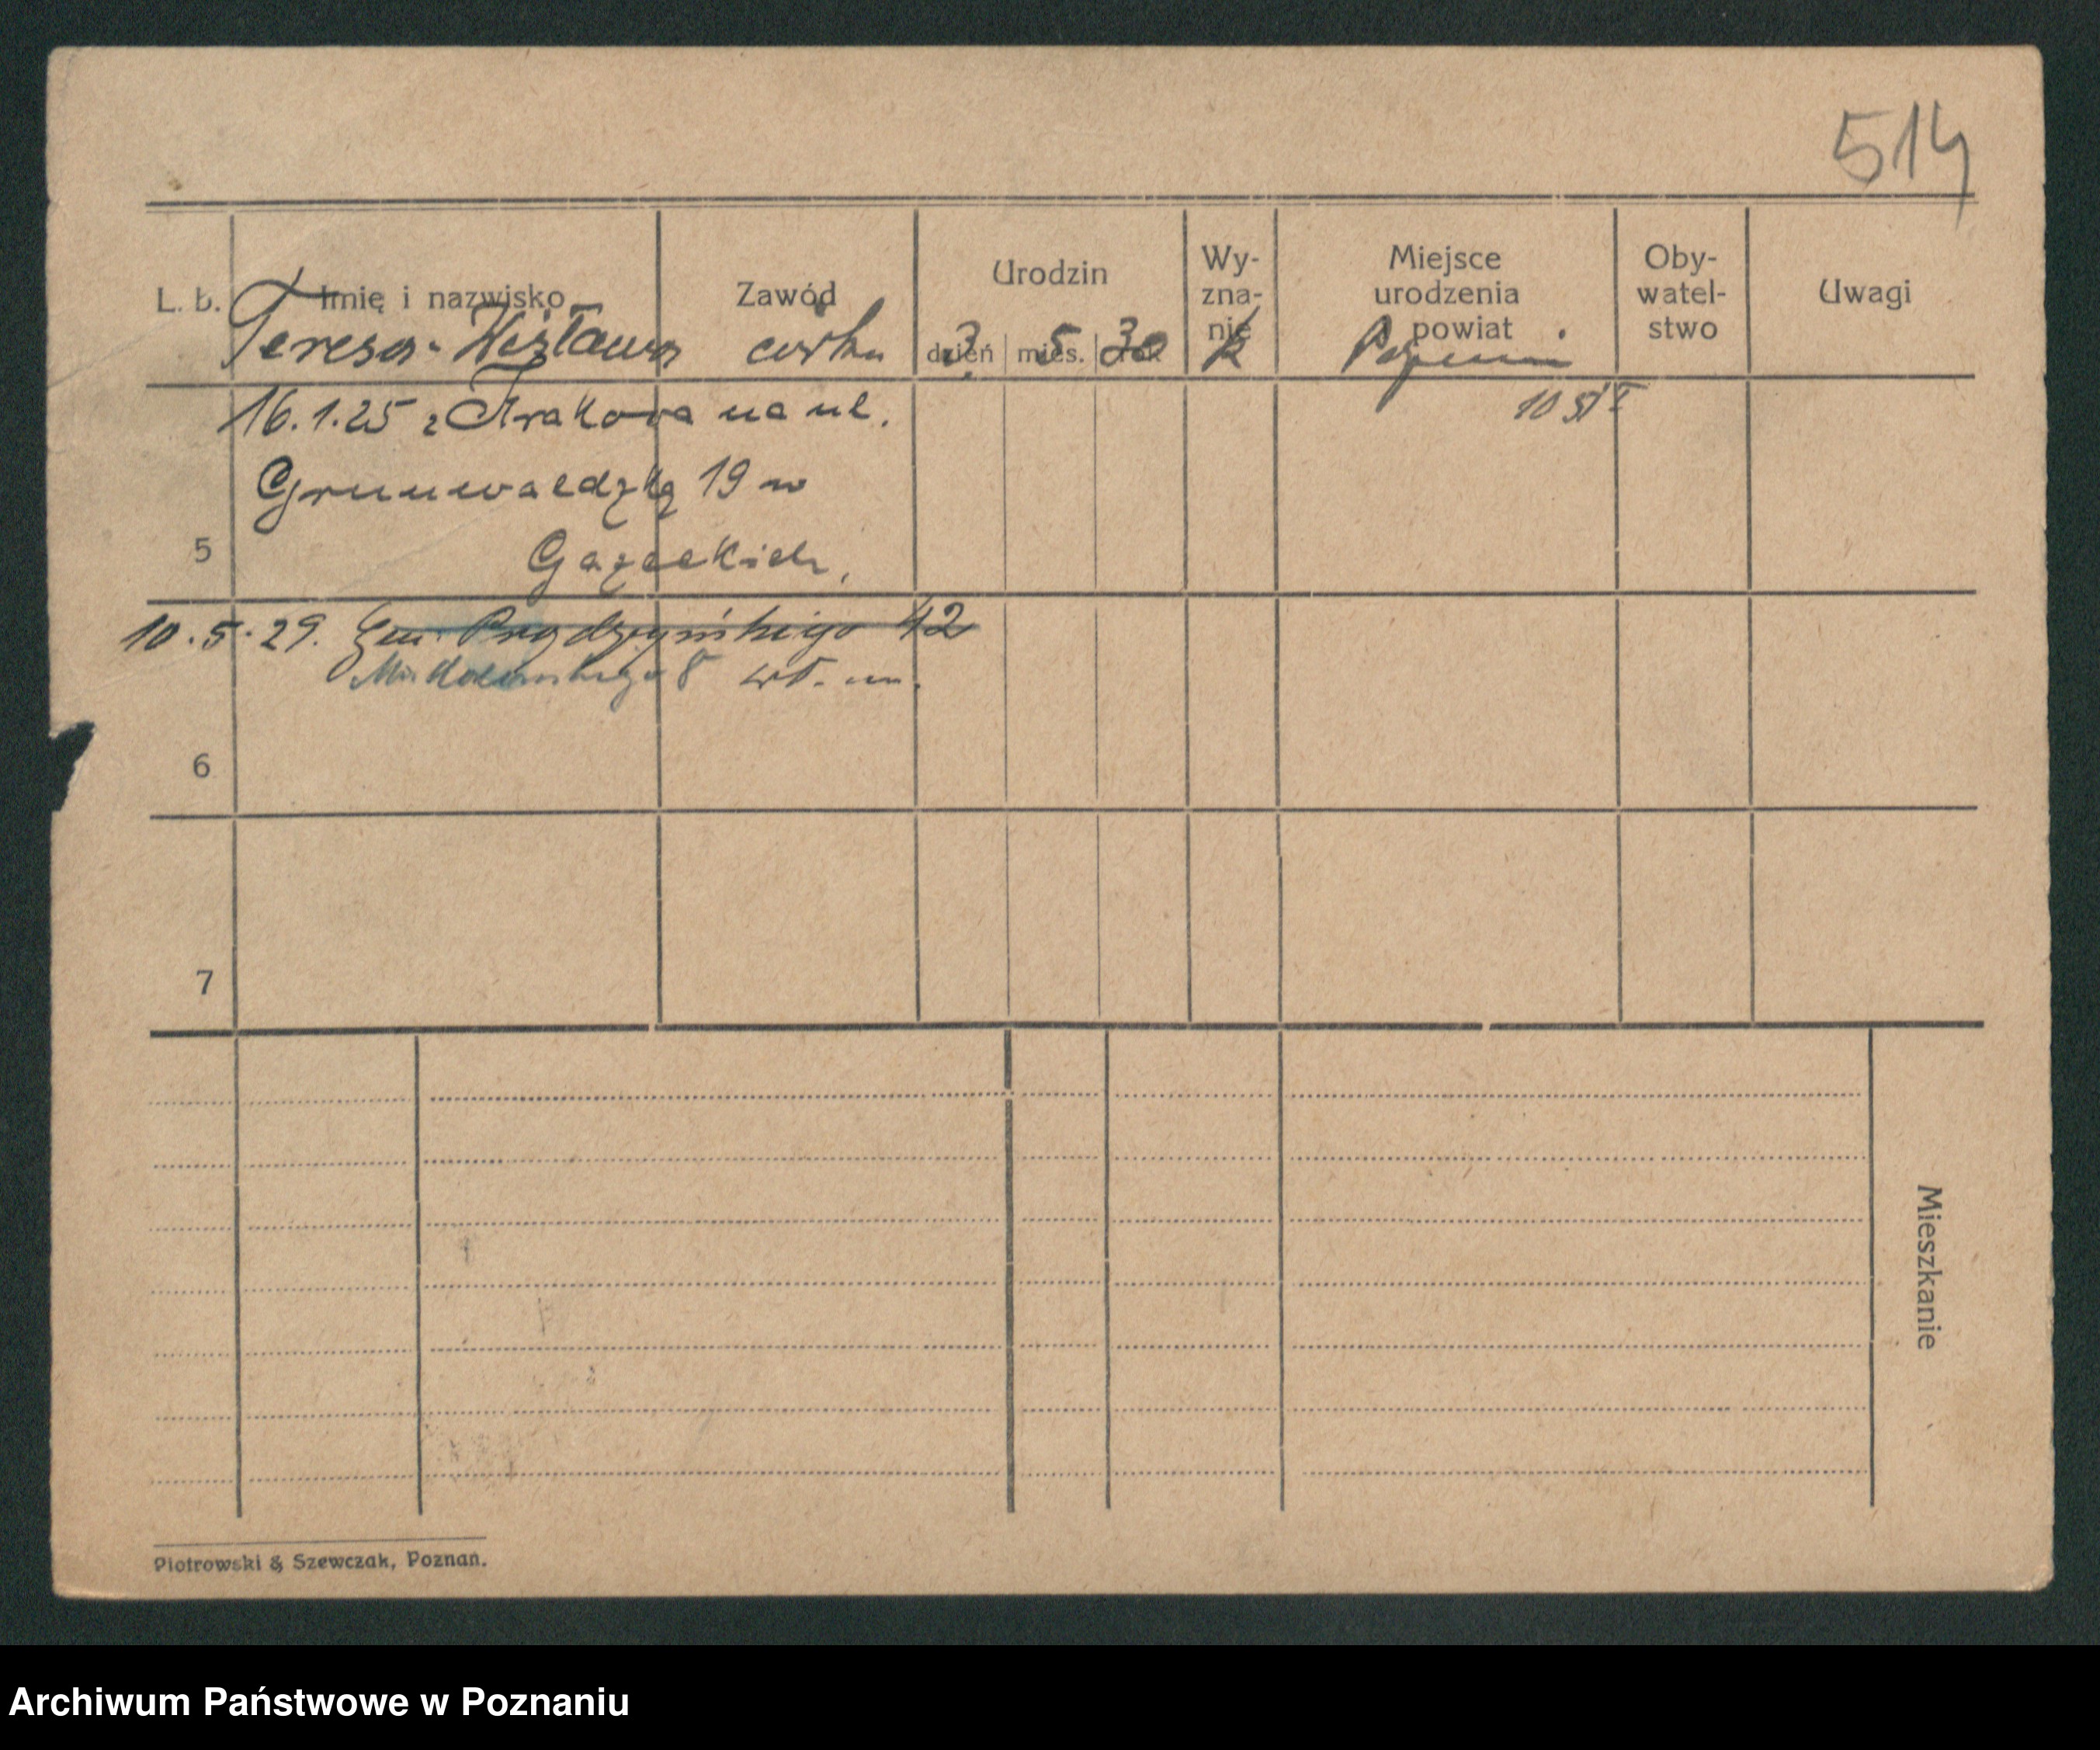 514
L. b. Imię i nazwisko Zawód Urodzin dzień mies. rok Wy-zna-nie Miejsce urodzenia powiat Oby-watel-stwo Uwagi
Teresa-Wisława córka 3. 5 30 k Poznań
16.1.25 z Krakowa na ul.
Grunwaldzką 19 w
5
10.5.29. Gen. Prądzyńskiego 42
8 wł. m.
6
7
Mieszkanie
Piotrowski & Szewczak, Poznań.
Archiwum Państwowe w Poznaniu